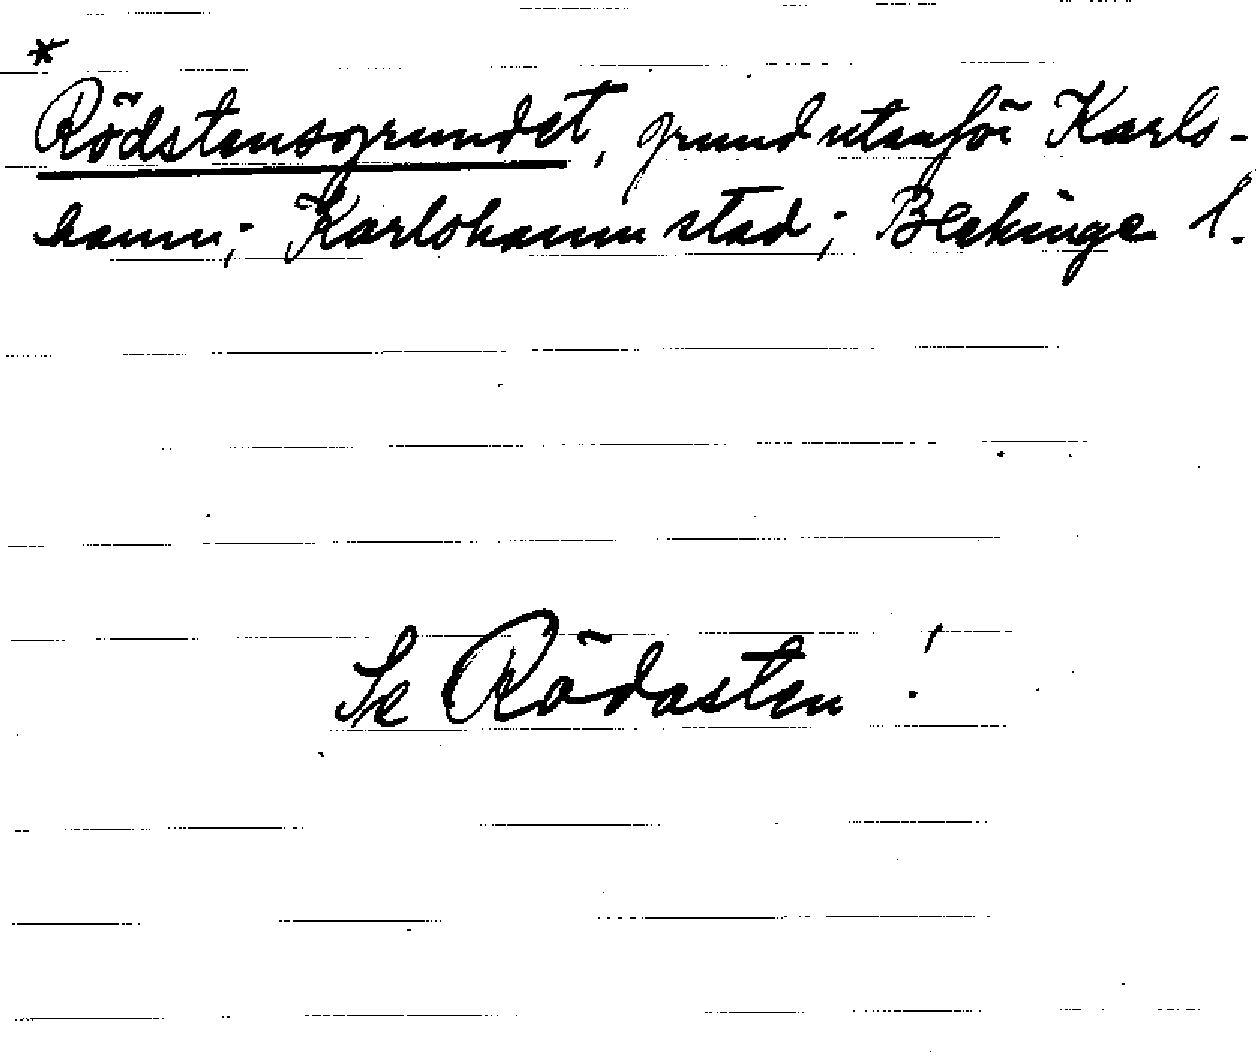 *
Rödstensgrundet, grund utanför Karls-
hamn; Karlshamn stad; Blekinge l.
Se Rödasten !